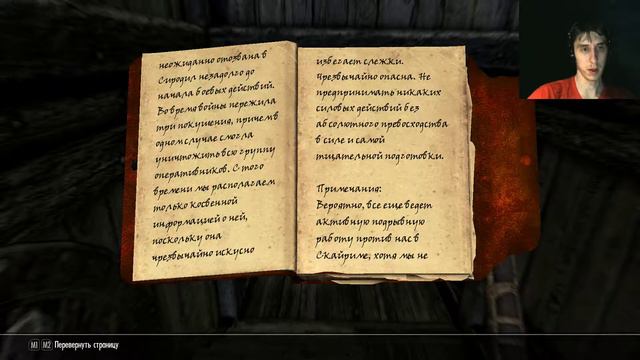 неожиданно отозвана в
Сиродил незадолго до
начала боевых действий.
Во время войны пережила
три покушения, причем в
одном случае смогла
уничтожить всю группу
оперативников. С того
времени мы располагаем
только косвенной
информацией о ней,
поскольку она
чрезвычайно искусно
избегает слежки.
Чрезвычайно опасна. Не
предпринимать никаких
силовых действий без
абсолютного превосходства
в силе и самой
тщательной подготовки.
Примечание:
Вероятно, все еще ведет
активную подрывную
работу против нас в
Скайриме, хотя мы не
M1 M2 Перевернуть страницу